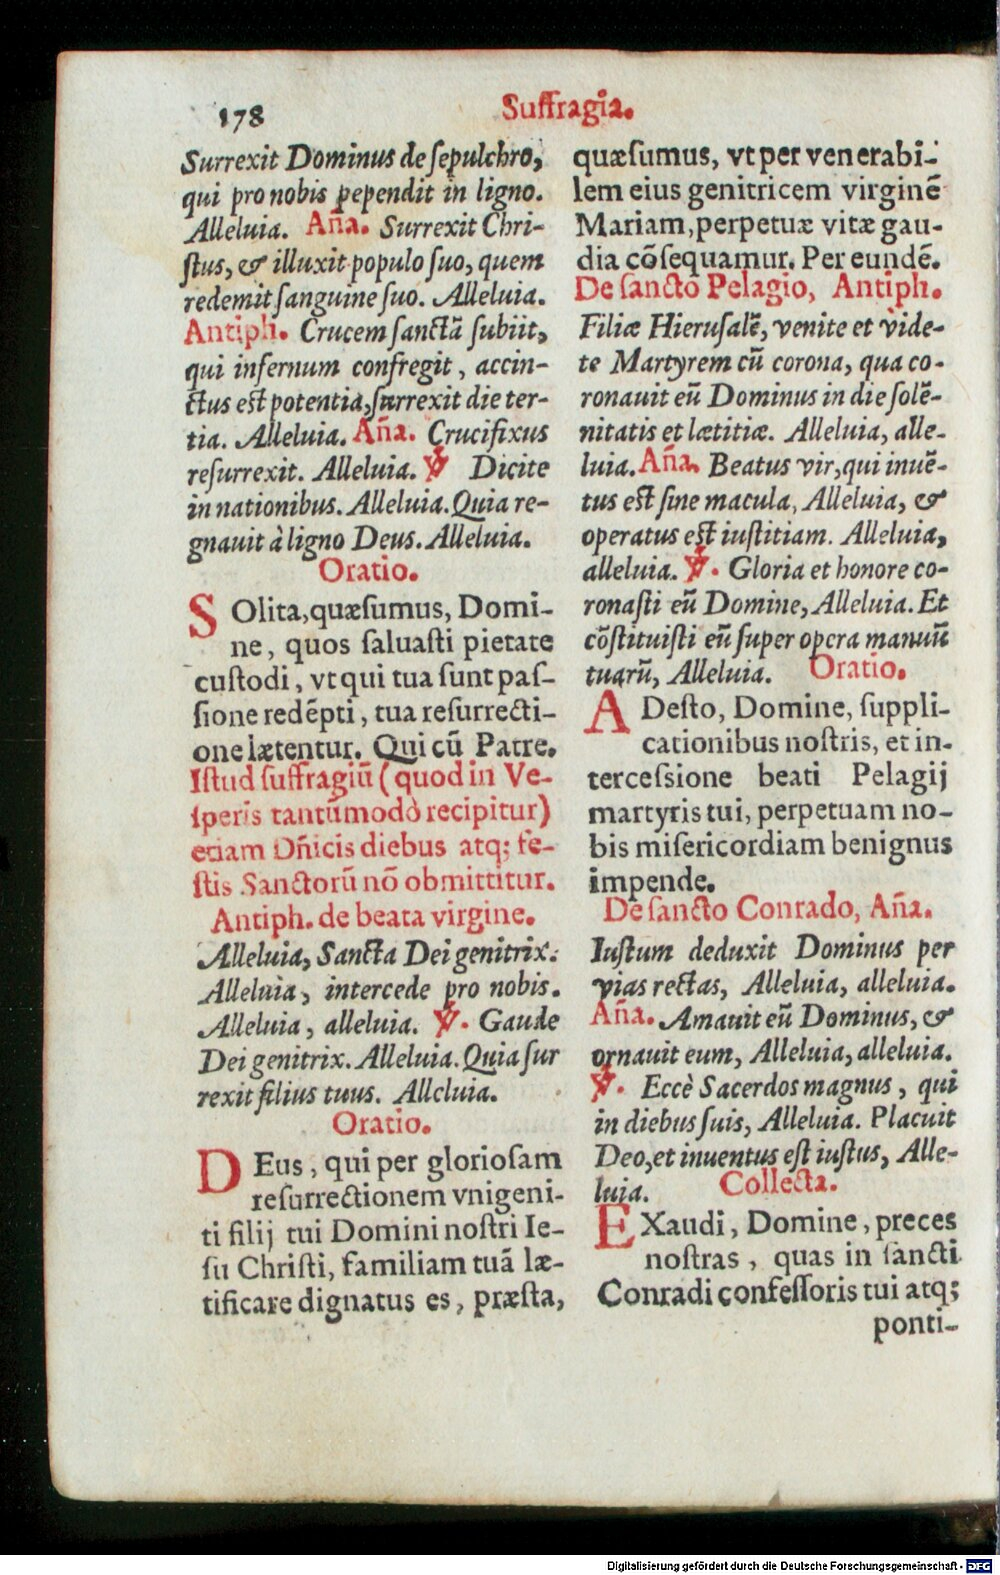 178
Suffragia.
Surrexit Dominus de ſepulchro,
qui pro nobis pependit in ligno.
Alleluia. Aña. Surrexit Chri-
ſtus, & illuxit populo ſuo, quem
redemit ſanguine ſuo. Alleluia.
Antiph. Crucem ſanctã ſubiit,
qui infernum confregit, accin-
ctus eſt potentia, ſurrexit die ter-
tia. Alleluia. Aña. Crucifixus
reſurrexit. Alleluia. ℣ Dicite
in nationibus. Alleluia. Quia re-
gnauit à ligno Deus. Alleluia.
Oratio.
SOlita, quæſumus, Domi-
ne, quos ſaluaſti pietate
cuſtodi, vt qui tua ſunt paſ-
ſione redẽpti, tua reſurrecti-
one lætentur. Qui cũ Patre.
Iſtud ſuffragiũ (quod in Ve-
ſperis tantũmodò recipitur)
etiam Dñicis diebus atq; fe-
ſtis Sanctorũ nõ obmittitur.
Antiph. de beata virgine.
Alleluia, Sancta Dei genitrix.
Alleluia, intercede pro nobis.
Alleluia, alleluia. ℣. Gaude
Dei genitrix. Alleluia. Quia ſur
rexit filius tuus. Alleluia.
Oratio.
DEus, qui per glorioſam
reſurrectionem vnigeni-
ti filij tui Domini noſtri Ie-
ſu Chriſti, familiam tuã læ-
tificare dignatus es, præſta,
quæſumus, vt per venerabi-
lem eius genitricem virginẽ
Mariam, perpetuæ vitæ gau-
dia cõſequamur. Per eundẽ.
De ſancto Pelagio, Antiph.
Filiæ Hieruſalẽ, venite et vide-
te Martyrem cũ corona, qua co-
ronauit eũ Dominus in die ſolẽ-
nitatis et lætitiæ. Alleluia, alle-
luia. Aña. Beatus vir, qui inuẽ-
tus eſt ſine macula, Alleluia, &
operatus eſt iuſtitiam. Alleluia,
alleluia. ℣. Gloria et honore co-
ronaſti eũ Domine, Alleluia. Et
cõſtituiſti eũ ſuper opera manuũ
tuarũ, Alleluia. Oratio.
ADeſto, Domine, ſuppli-
cationibus noſtris, et in-
terceſsione beati Pelagij
martyris tui, perpetuam no-
bis miſericordiam benignus
impende.
De ſancto Conrado, Aña.
Iuſtum deduxit Dominus per
vias rectas, Alleluia, alleluia.
Aña. Amauit eũ Dominus, &
ornauit eum, Alleluia, alleluia.
℣. Eccè Sacerdos magnus, qui
in diebus ſuis, Alleluia. Placuit
Deo, et inuentus eſt iuſtus, Alle-
luia. Collecta.
EXaudi, Domine, preces
noſtras, quas in ſancti
Conradi confeſſoris tui atq;
ponti-
Digitalisierung gefördert durch die Deutsche Forschungsgemeinschaft - DFG